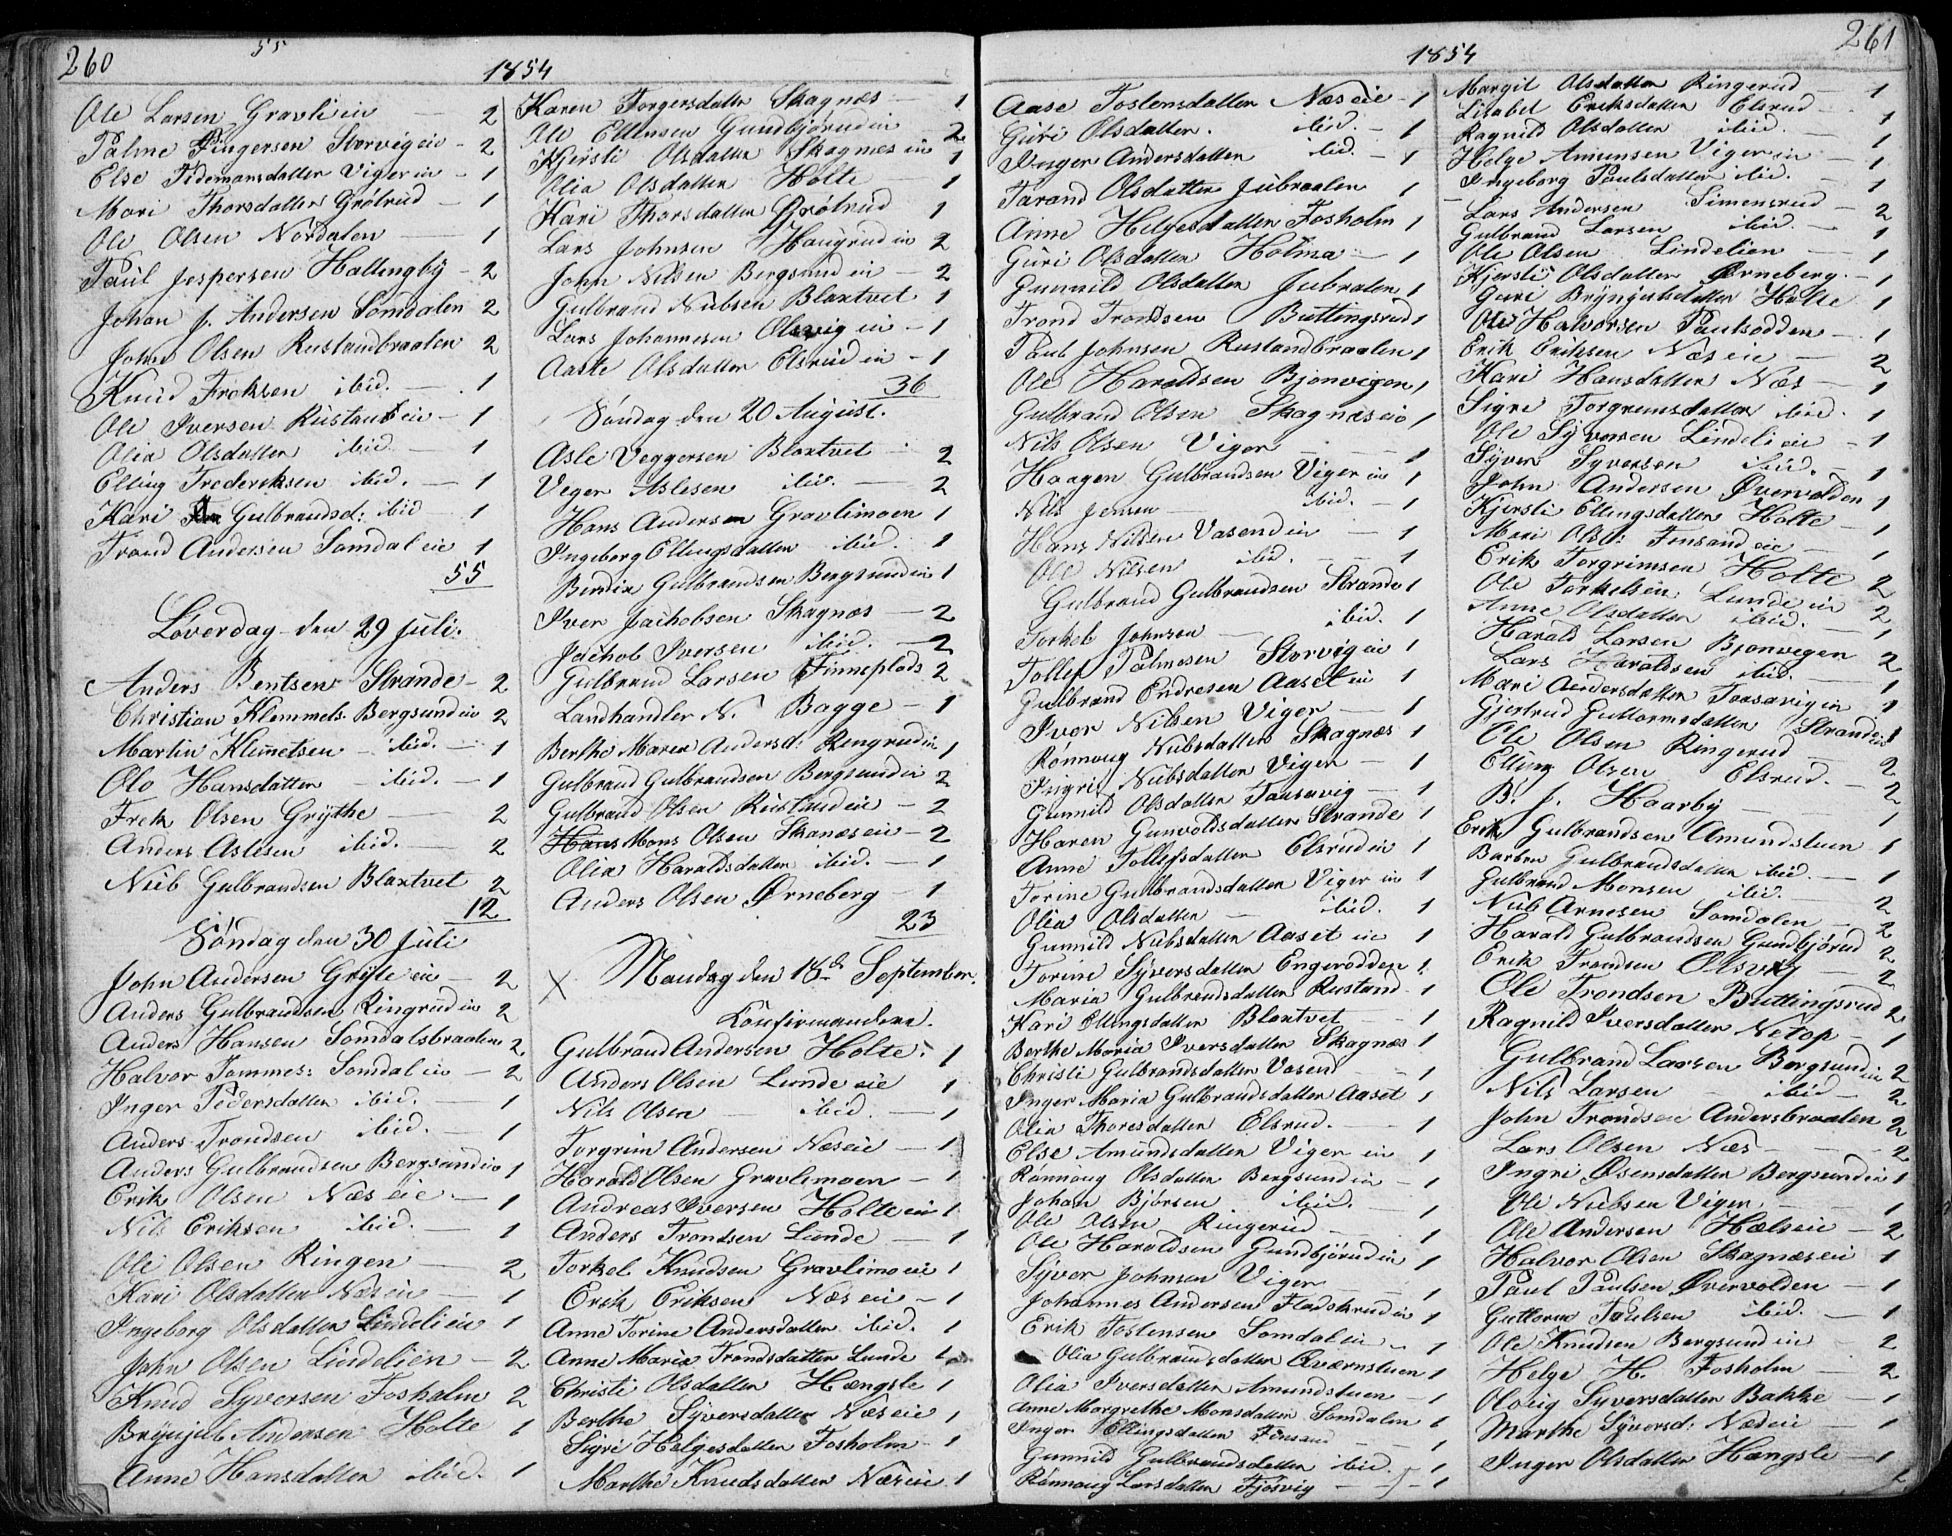 260
55
1854
Ole Larsen Gravli ein — 2
Palme Pingersen Storvig eie - 2
Else Tidemansdatter Viger in - 1
Mari Thorsdatter Grôtrud - 1
Ole Olsen Nordalen — 1
Paul Jespersen Hallingby - 2
Johan J. Andersen Somdalen 2
John Olsen Rustandbraaten 2
Knud Freksen ibid. — 1
Ole Iversen Rustand eie - 1
Olia Olsdatter ibid. — 1
Elling Frederiksen ibid. — 1
Kari Gulbrandsd: ibid - 1
Trond Andersen Somdal eie 1
55
Löverdag den 29 Juli.
Anders Bentsen Strande - 2
Christian Klemmets. Bergsund in 2
Martin Klemetsen - ibid. - 1
Ole Hansdatter - ibid. - 1
Frek Olsen Grythe — 2
Anders Aslesen ibid. — 2
Niib Gulbrandsen Blaxtvet 2
12
Söndag den 30 Juli
John Andersen Gryte ein - 2
Anders Gulbrandsen Ringrud in 2
Anders Hansen Somdalsbraaten 2
Halvor Tommes: Somdal in - 2
Inger Pedersdatter ibid. — 1
Anders Trondsen ibid. — 1
Anders Gulbrandsen Bergsund in 1
Erik Olsen Næs eie - 1
Nils Eriksen ibid. — 1
Ole Olsen Ringen — 2
Kari Olsdatter Næs eie — 1
Ingeborg Olsdatter Lindeli ein 1
John Olsen Lindelien - 2
Knud Syversen Fosholm 2
Brynjulv Andersen Holte 1
Anne Hansdatter ibid. 1
Karen Torgersdatter Skagnæs — 1
Ole Ellensen Gundbjørud in 2
Kjersti Olsdatter Skagnæs in 1
Olia Olsdatter Holte 1
Kari Thorsdatter Grôtrud 1
Lars Johnsen Haugrud in 2
John Nilsen Bergsund ein — 2
Gulbrand Niibsen Blaxtvet 1
Lars Johannesen Olsvig in - 1
Aaste Olsdatter Elsrud in - 1
36
Söndag den 20 August.
Asle Veggersen Blaxtvet - 2
Veger Aslesen ibid. — 2
Hans Andersen Gravlimoen 1
Ingeborg Ellingsdatter ibid. 1
Bendix Gulbrandsen Bergsund in 1
Iver Jachobsen Skagnæs — 2
Jachob Iversen ibid. — 2
Gulbrand Larsen Finneplads 2
Landhandler N. Bagge - 1
Berthe Maren Andersd: Rengrud in 1
Gulbrand Gulbrandsen Bergsund in 2
Gulbrand Olsen Rustand eie - 2
Hans Mons Olsen Skanæs eie - 2
Olia Haraldsdatter ibid. — 1
Anders Olsen Ørneberg — 1
23
Mandag den 18de September.
Confirmandere.
Gulbrand Andersen Holte. 1
Anders Olsen Lunde eie 1
Nils Olsen — ibid. — 1
Torgrim Andersen Næs eie — 1
Harald Olsen Gravlimoen - 1
Andreas Iversen Holte ein 1
Anders Trondsen Lunde — 1
Torkel Knudsen Gravlimo eie 1
Erik Eriksen Næs eie - 1
Anne Torine Andersdatter ibid. 1
Anne Maria Trondsdatter Lunde 1
Christi Olsdatter Hængsle 1
Berthe Syversdatter Næs eie 1
Sigri Helgesdatter Fosholm - 1
Marthe Knudsdatter Næs eie 1
1854
261
Aase Tostensdatter Næs eie - 1
Guri Olsdatter. ibid. - 1
Inger Andersdatter ibid. - 1
Tarand Olsdatter Jubraaten 1
Anne Helgesdatter Fosholm 1
Guri Olsdatter Holma - 1
Gunnild Olsdatter Jubraten 1
Trond Trondsen Buttingsrud 1
Paul Johnsen Rustandbraaten 1
Ole Haraldsen Bjonvigen 1
Gulbrand Olsen Skagnæs eie 1
Nils Olsen Viger — 1
Haagen Gulbrandsen Viger in 1
Nils Jensen — ibid. - 1
Hans Nilsen Vasend in — 1
Ole Nilsen ibid. — 1
Gulbrand Gulbrandsen Strande 1
Torkel Johnsen — ibid. 1
Tollef Palmesen Storvig ein 1
Gulbrand Endresen Aaset in 1
Iver Nilsen Viger — 1
Rønnoug Niibsdatter Skagnæs 1
Ingri Niibsdatter Viger — 1
Gunnild Olsdatter Taasavig — 1
Haren Gunvoldsdatter Strande 1
Anne Tollefsdatter Elsrud in 1
Torine Gulbrandsdatter Viger in 1
Olia Olsdatter — ibid. 1
Gunnild Niibsdatter Aaset in 1
Torine Syversdatter Engerodden 1
Maria Gulbrandsdatter Rustand 1
Kari Ellingsdatter Blaxtvet - 1
Berthe Maria Iversdatter Skagnæs 1
Christi Gulbrandsdatter Vasend - 1
Inger Maria Gulbrandsdatter Aaset 1
Olia Thoresdatter Elsrud. - 1
Else Amundsdatter Viger in 1
Rønnoug Olsdatter Bergsund in - 1
Johan Bjørsen — ibid. 1
Ole Olsen Ringerud - 1
Ole Haraldsen Gundbjørud in 1
Syver Johnsen Viger 1
Johannes Andersen Fladskrud in 1
Erik Tostensen Somdal in - 1
Olia Gulbrandsdatter Qværnstuen 1
Olia Iversdatter Amundstuen - 1
Anne Margrethe Monsdatter Somdalen 1
Inger Ellingsdatter Finsand - 1
Gunnild Gulbrandsdatter ibid. - 1
Rønnoug Larsdatter Fjøsvig - 1
Margit Olsdatter Ringerud — 1
Lisabet Eriksdatter Elsrud - 1
Ragnild Olsdatter ibid. — 1
Helge Amunsen Viger in — 1
Ingeborg Paulsdatter ibid. — 1
Lars Andersen Simensrud - 2
Gulbrand Larsen ibid. — 1
Ole Olsen Lindelien — 1
Kjersti Olsdatter Ørneberg. - 1
Guri Brynjulsdatter Holte 1
Ole Halvorsen Paulsodden - 1
Erik Eriksen Næs eie — 2
Kari Hansdatter Næs — 1
Sigri Torgrimsdatter ibid. 1
Ole Syversen Lindeli ein - 1
Syver Syversen ibid. - 1
John Andersen Øvervolden 1
Kjersti Ellingsdatter Holte - 1
Mari Olsd: Finsand eie — 1
Erik Torgrimsen Holte 2
Ole Torkelsen Lunde in 2
Anne Olsdatter ibid. — 1
Harald Larsen Bjonvegen 2
Lars Haraldsen ibid. — 1
Mari Andersdatter Taasavig in 1
Gjertrud Guttormsdatter Strande in 1
Ole Olsen Ringerud — 2
Elling Olsen Elsrud. - 2
B. J. Haarby — 1
Erik Gulbrandsen Amundstuen 1
Barbro Gulbrandsdatter ibid. — 1
Gulbrand Monsen ibid. — 2
Niib Arnesen Somdalen — 2
Harald Gulbrandsen Gundbjørud 2
Erik Trondsen Olsvig 2
Ole Trondsen Buttingsrud 2
Ragnild Iversdatter Netop - 1
Gulbrand Larsen Bergsund in 2
Nils Larsen — ibid — 2
John Trondsen Andersbraaten 2
Lars Olsen Næs - 2
Ingri Olsensdatter Bergsund in 1
Ole Nielsen Viger — 1
Ole Andersen Hæls eie - 2
Halvor Olsen Skagnæs eie 1
Paul Paulsen Øvervolden - 1
Guttorm Paulsen ibid. — 1
Ole Knudsen Bergsund in - 2
Helge H. Fosholm — 2
Oloug Syversdatter Bakke - 1
Marthe Syversd: Næs eie — 1
Inger Olsdatter Hængsle — 1